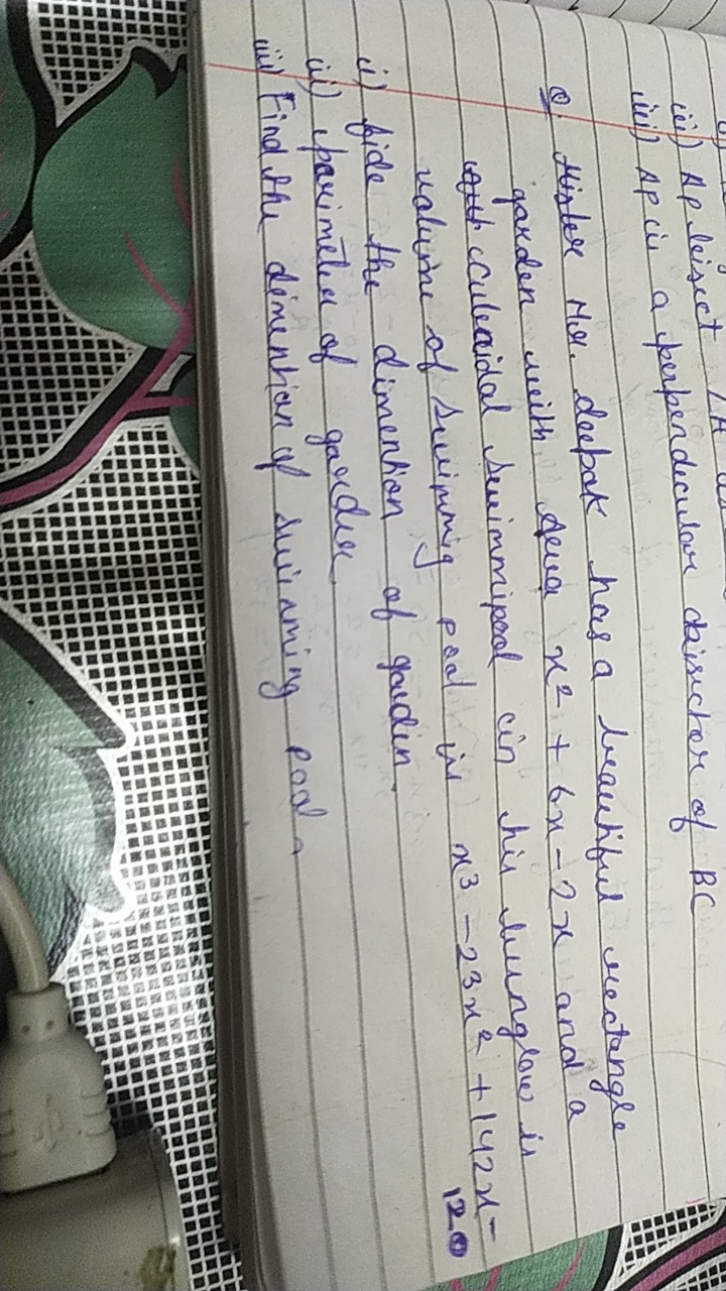 iii) AP bisect
iii) AP is a perpendicular bisector of BC
Q. Mister Mr. deepak has a beautiful rectangle
garden with area x² + 6x - 2x and a
cuboidal swimmipool in his bunglow is
volume of swimmig pool is x³ - 23x² + 142x -
120
i) fide the dimention of gardin.
ii) parimeter of garden
iii) Find the dimention of swimming pool